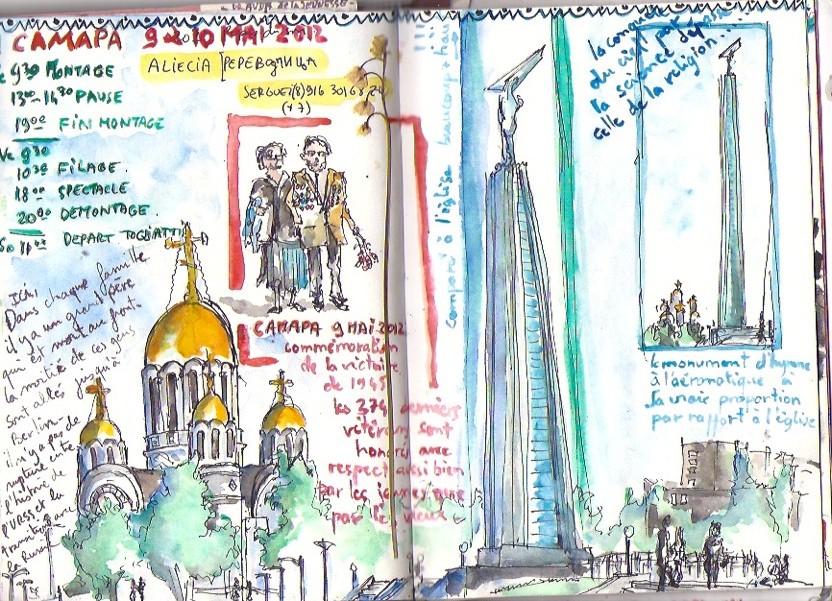 CAMAPA 9 & 10 MAI 2012
9 30 MONTAGE
13 00 - 14 30 PAUSE
19 00 FIN MONTAGE
Ve 9 30
10 30 FILAGE.
18 00 SPECTACLE
20 00 DEMONTAGE.
DEPART TOGLIATTI
ALIECIA
ici,
Dans chaque famille
il y a un grand père
qui est mort au front.
la moitié de ces gens
sont allés jusqu'à
Berlin.
il n'y a pas de
rupture entre
l'histoire de
l'URSS et la
la Russie
CAMAPA 9 MAI 2012
commémoration
de la victoire
de 1945
les 374 derniers
vétérans sont
honorés avec
respect aussi bien
par les jeunes que
par les vieux
comparé à l'église beaucoup + haut !!!
la conquête
du ciel par
la science dépasse
celle de la religion...
le monument d'hymne
à l'aéronautique à
sa vraie proportion
par rapport à l'église